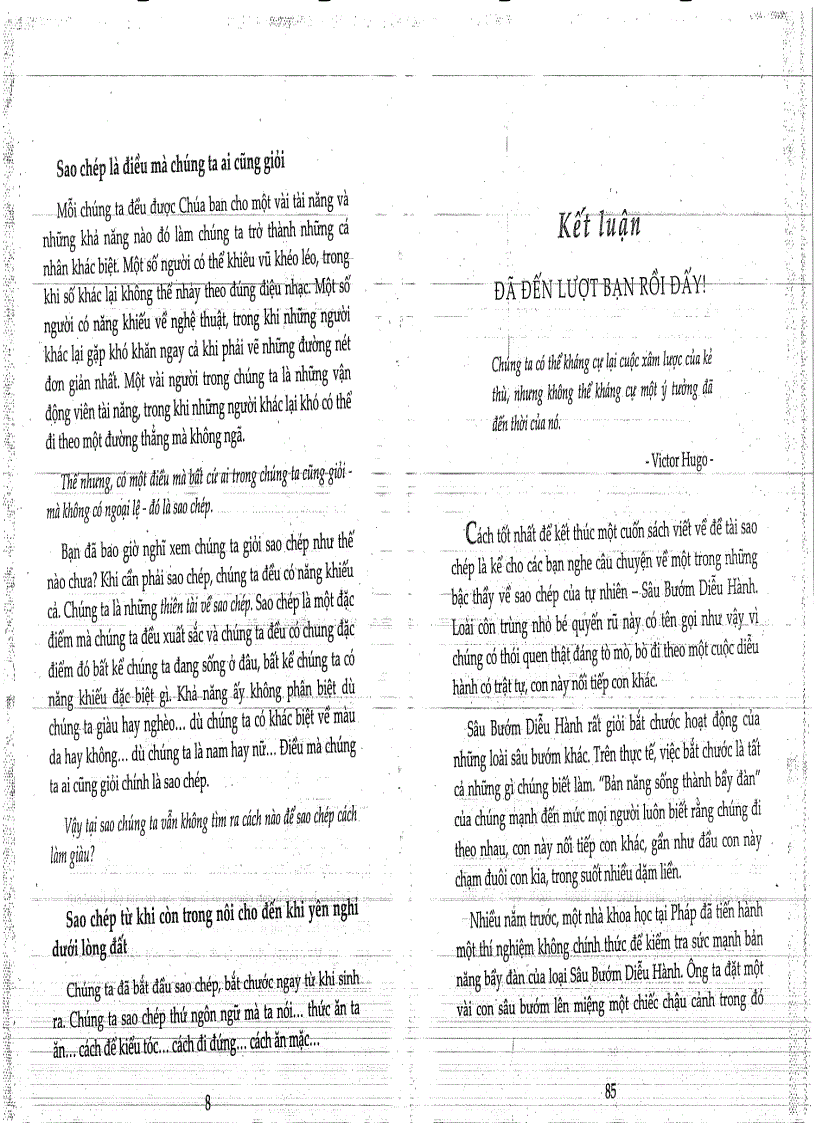 Sao chép là điều mà chúng ta ai cũng giỏi
Mỗi chúng ta đều được Chúa ban cho một vài tài năng và
những khả năng nào đó làm chúng ta trở thành những cá
nhân khác biệt. Một số người có thể khiêu vũ khéo léo, trong
khi số khác lại không thể nhảy theo đúng điệu nhạc. Một số
người có năng khiếu về nghệ thuật, trong khi những người
khác lại gặp khó khăn ngay cả khi phải vẽ những đường nét
đơn giản nhất. Một vài người trong chúng ta là những vận
động viên tài năng, trong khi những người khác lại khó có thể
đi theo một đường thẳng mà không ngã.
Thế nhưng, có một điều mà bất cứ ai trong chúng ta cũng giỏi -
mà không có ngoại lệ - đó là sao chép.
Bạn đã bao giờ nghĩ xem chúng ta giỏi sao chép như thế
nào chưa? Khi cần phải sao chép, chúng ta đều có năng khiếu
cả. Chúng ta là những thiên tài về sao chép. Sao chép là một đặc
điểm mà chúng ta đều xuất sắc và chúng ta đều có chung đặc
điểm đó bất kể chúng ta đang sống ở đâu, bất kể chúng ta có
năng khiếu đặc biệt gì. Khả năng ấy không phân biệt dù
chúng ta giàu hay nghèo... dù chúng ta có khác biệt về màu
da hay không... dù chúng ta là nam hay nữ... Điều mà chúng
ta ai cũng giỏi chính là sao chép.
Vậy tại sao chúng ta vẫn không tìm ra cách nào để sao chép cách
làm giàu?
Sao chép từ khi còn trong nôi cho đến khi yên nghỉ
dưới lòng đất
Chúng ta đã bắt đầu sao chép, bắt chước ngay từ khi sinh
ra. Chúng ta sao chép thứ ngôn ngữ mà ta nói... thức ăn ta
ăn... cách để kiểu tóc... cách đi đứng... cách ăn mặc...
8
Kết luận
ĐÃ ĐẾN LƯỢT BẠN RỒI ĐẤY!
Chúng ta có thể kháng cự lại cuộc xâm lược của kẻ
thù, nhưng không thể kháng cự một ý tưởng đã
đến thời của nó.
- Victor Hugo -
Cách tốt nhất để kết thúc một cuốn sách viết về đề tài sao
chép là kể cho các bạn nghe câu chuyện về một trong những
bậc thầy về sao chép của tự nhiên – Sâu Bướm Diễu Hành.
Loài côn trùng nhỏ bé quyến rũ này có tên gọi như vậy vì
chúng có thói quen thật đáng tò mò, bò đi theo một cuộc diễu
hành có trật tự, con này nối tiếp con khác.
Sâu Bướm Diễu Hành rất giỏi bắt chước hoạt động của
những loài sâu bướm khác. Trên thực tế, việc bắt chước là tất
cả những gì chúng biết làm. "Bản năng sống thành bầy đàn"
của chúng mạnh đến mức mọi người luôn biết rằng chúng đi
theo nhau, con này nối tiếp con khác, gần như đầu con này
chạm đuôi con kia, trong suốt nhiều dặm liền.
Nhiều năm trước, một nhà khoa học tại Pháp đã tiến hành
một thí nghiệm không chính thức để kiểm tra sức mạnh bản
năng bầy đàn của loại Sâu Bướm Diễu Hành. Ông ta đặt một
vài con sâu bướm lên miệng một chiếc chậu cảnh trong đó
85